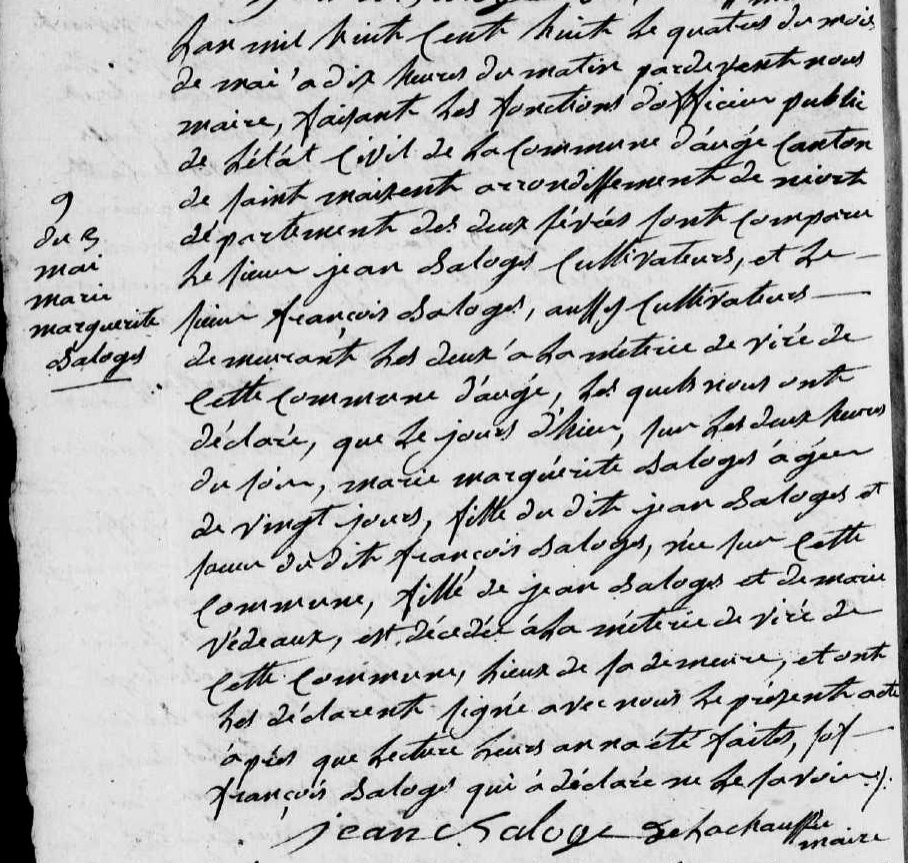 Lan mil huit Cent huit le quatres du mois
de mai a dix heures du matin pardevent nous
maire, faisant les fonctions doffficier public
de Létat Civil de La Commune daugé Canton
de saint maixent arrondissement de niort
département des deux sévrés sont Comparu
Le sieur jean Saloges Cultivateurs, et Le
sieur françois Saloges, aussy Cultivateurs
demeurant Les deux a La méterie de viré de
Cette Commune daugé, Les quels nous ont
déclaré, que Le jours d'hier, sur Les deux heures
du soir, marie marguérite Saloges ágéer
de vingt jours, fille du dit jean Saloges et
soeur du dit françois Saloges, née sur Cette
Commune, fille de jean Saloges et de marie
védeaux, est décedée á La méterie de viré de
Cette Commune, Lieux de sa demeure, et ont
Les déclarent signé avec nous Le présent acte
áprés que Lecture Leurs an na été faites, sof
françois Saloges qui á déclaré ne Le savoir ./.
jean Saloge De Lachauffée
maire
9
du 3
mai
marie
marguerite
Saloges